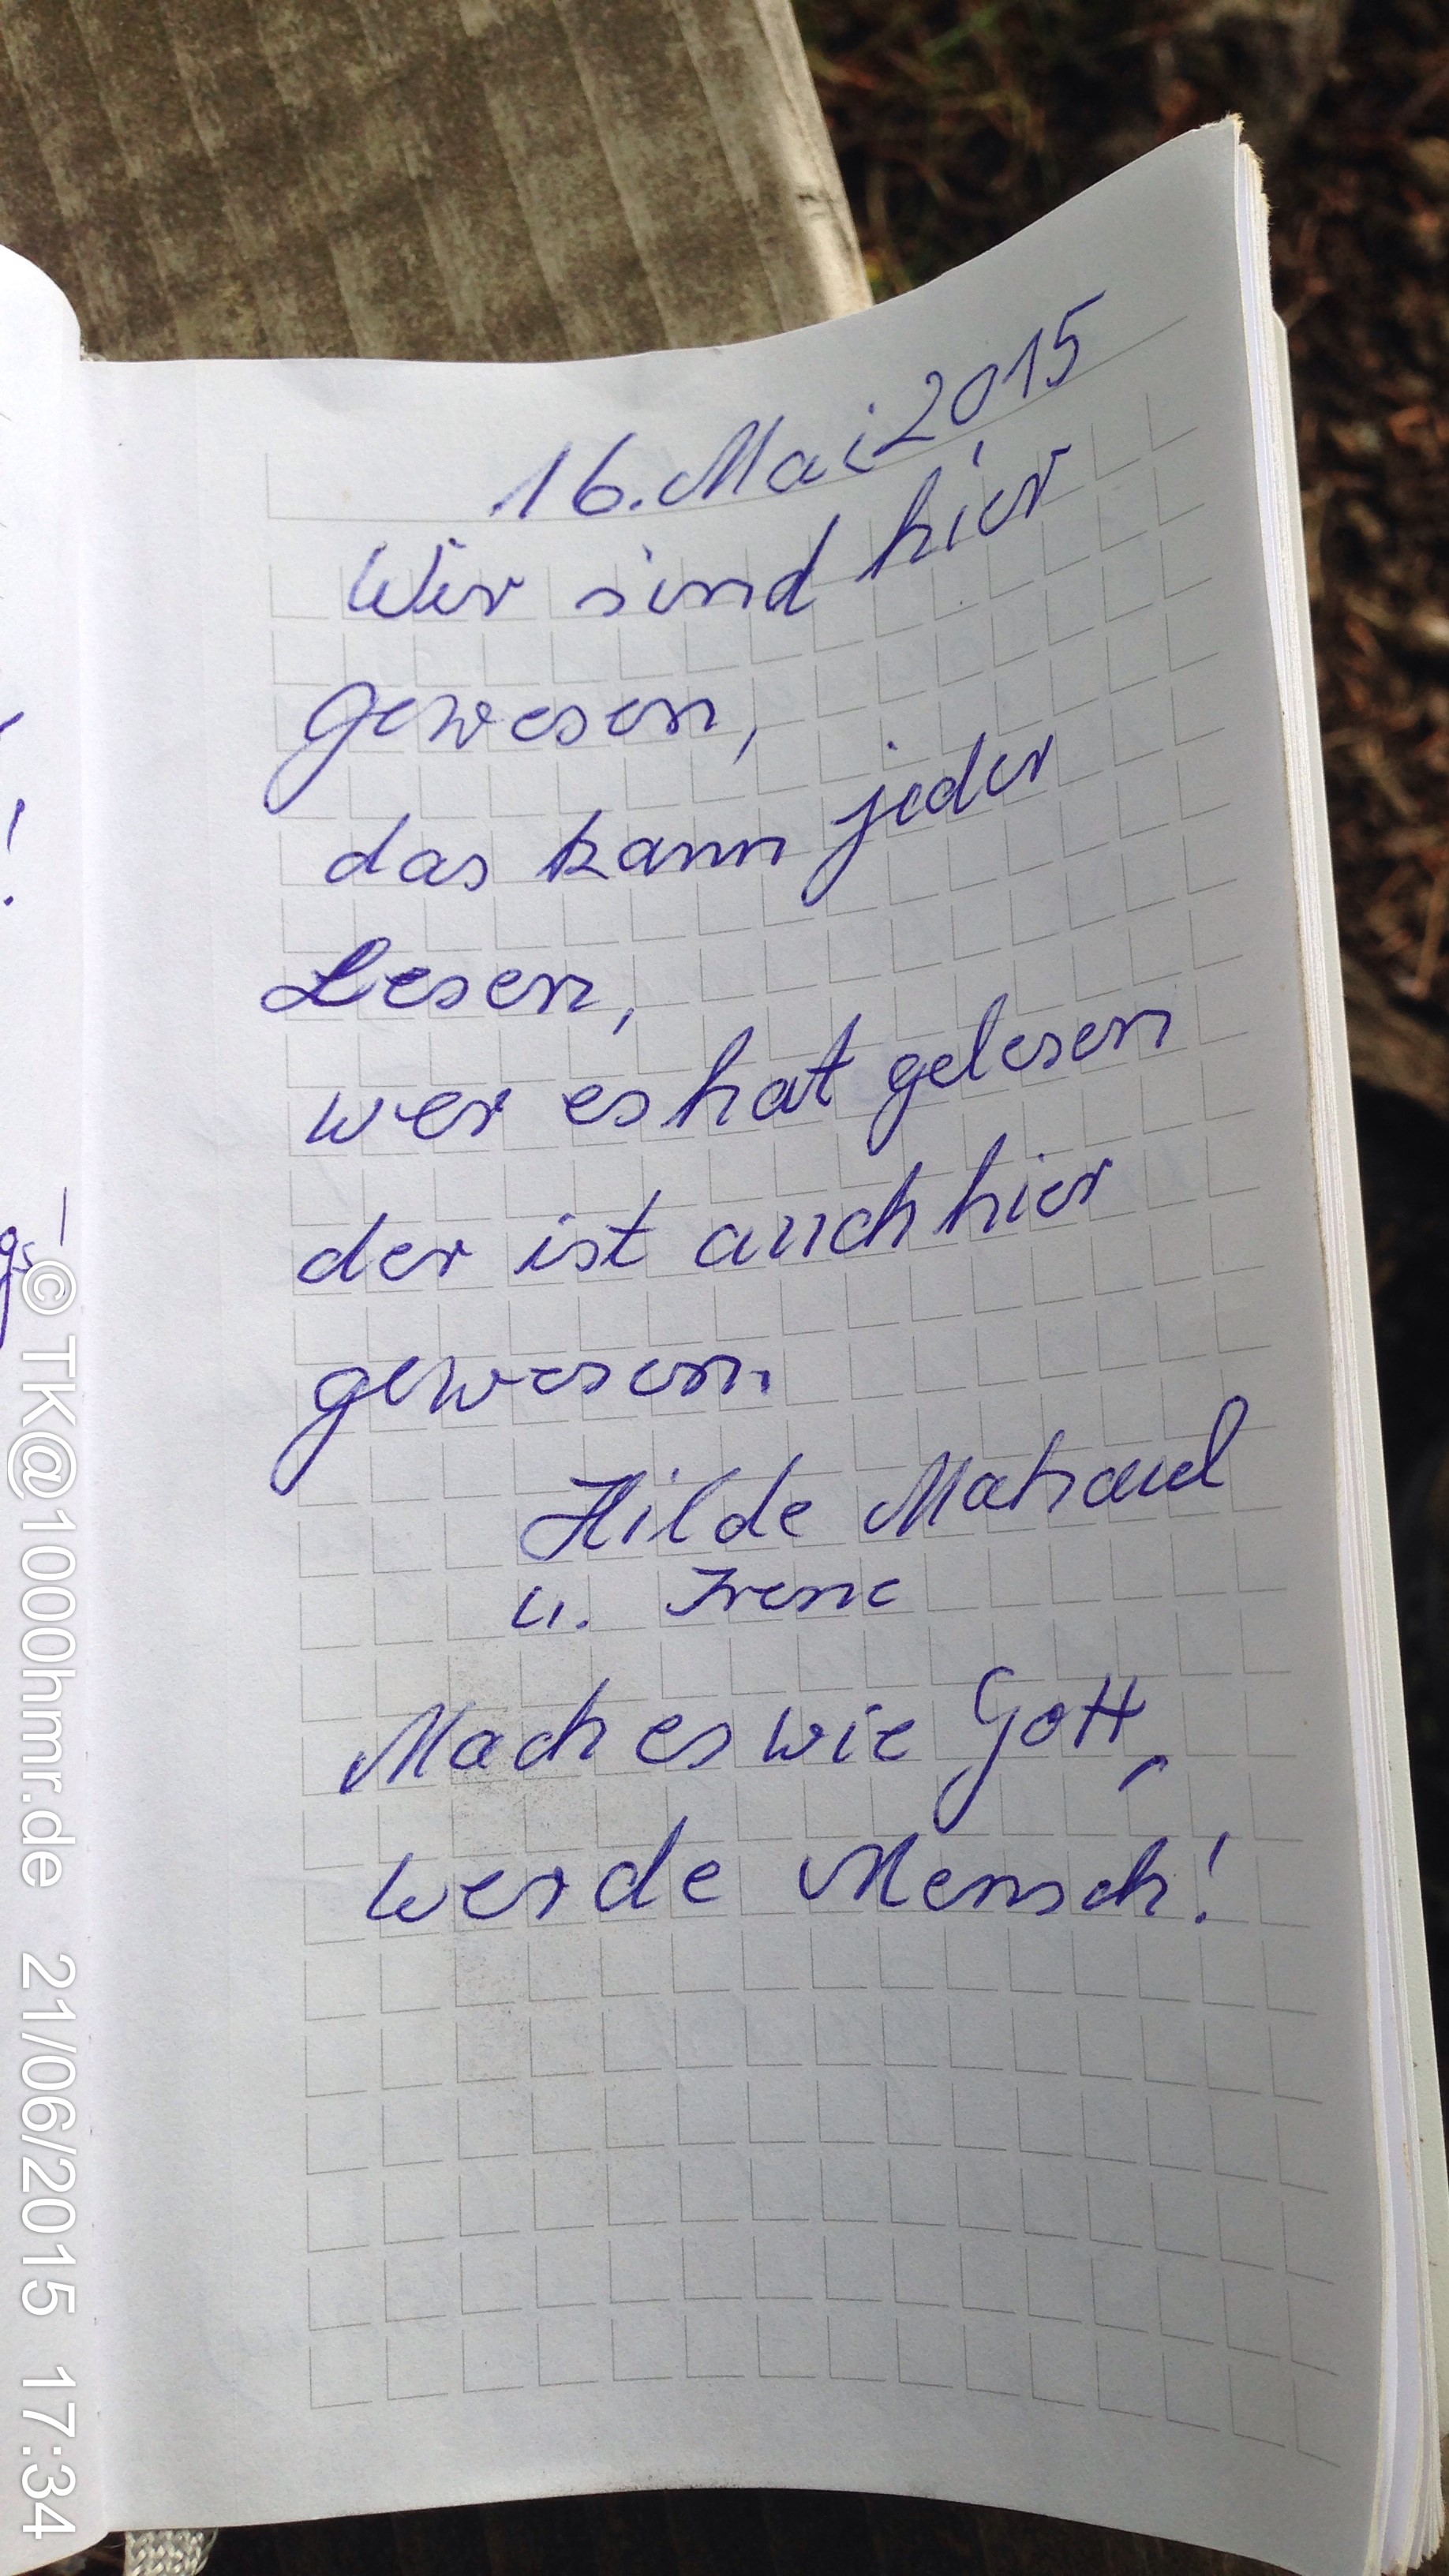 16. Mai 2015
Wir sind hier
gewesen,
das kann jeder
Lesen,
wer es hat gelesen
der ist auch hier
gewesen.
Hilde
u. Irene
Mach es wie Gott,
werde Mensch!
© TK@1000hmr.de 21/06/2015 17:34